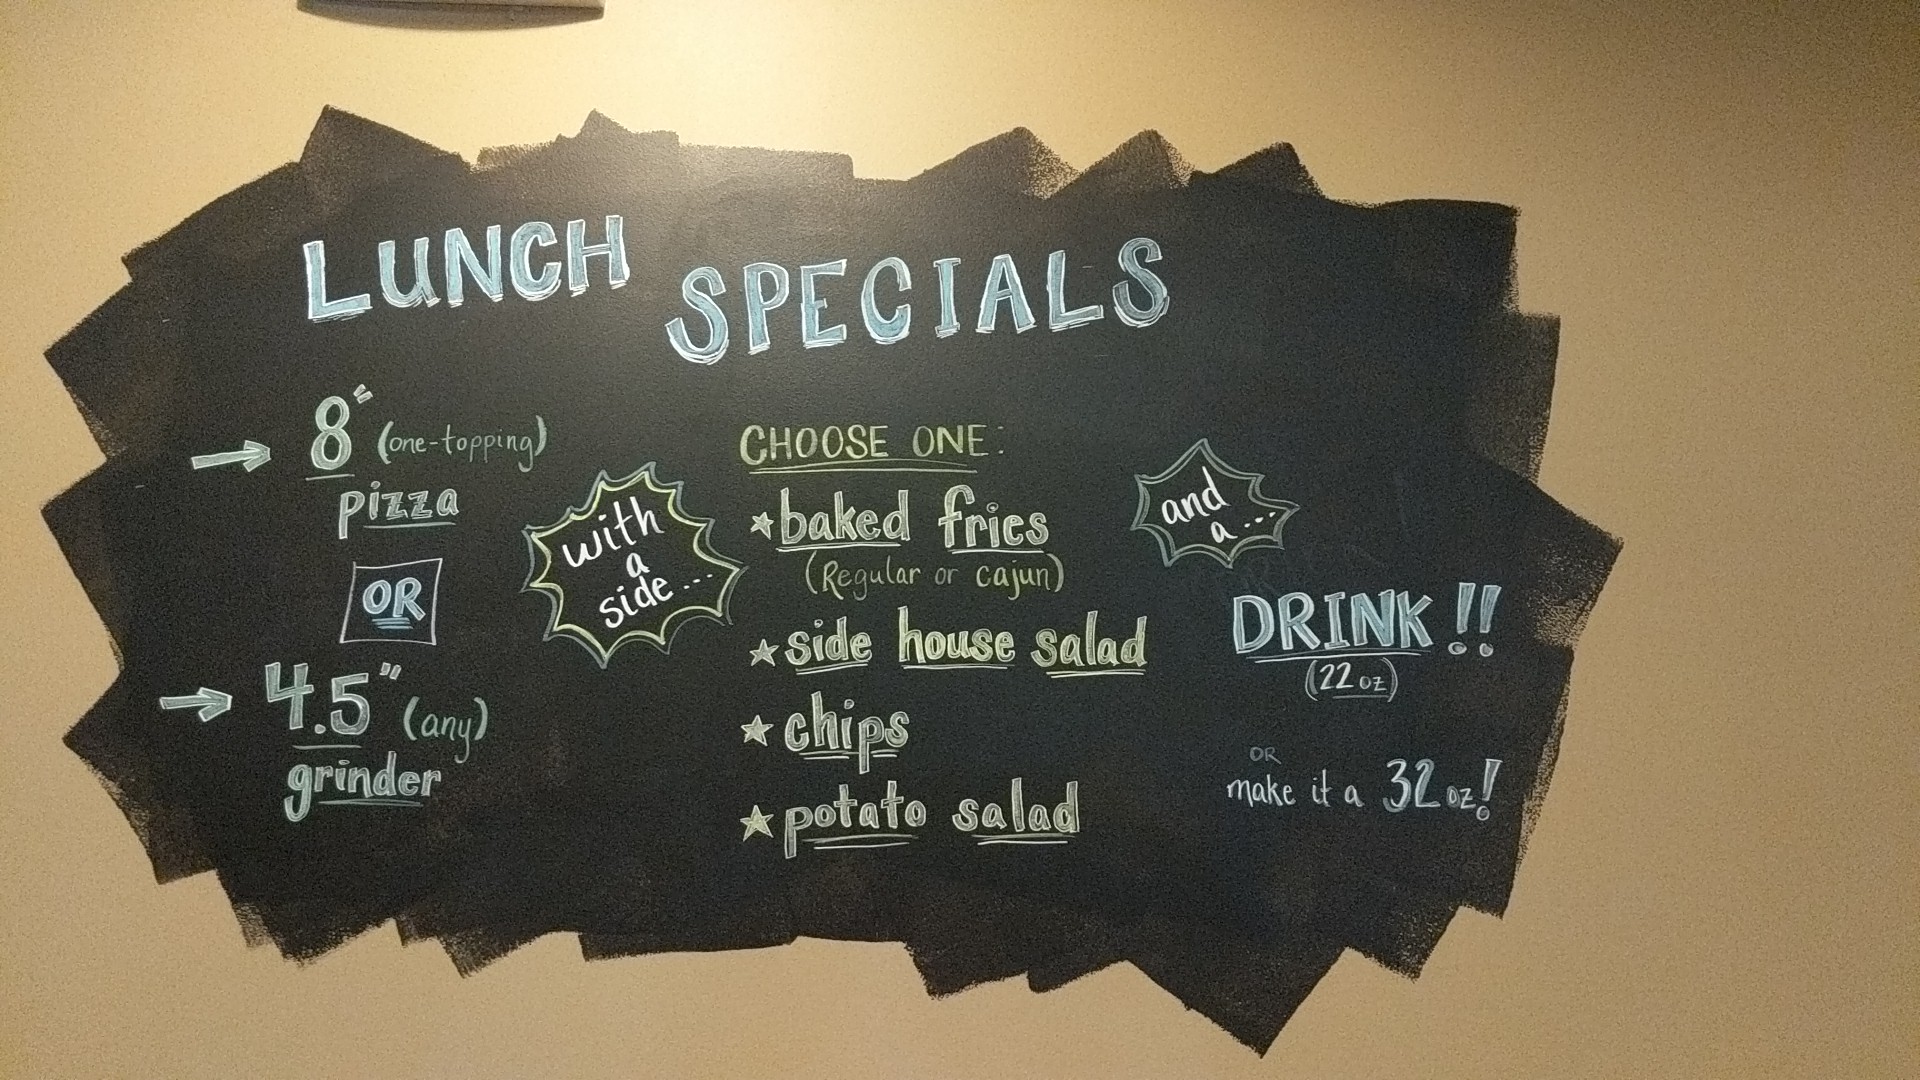 LUNCH SPECIALS
8" (one-topping)
pizza
OR
4.5" (any)
grinder
with
a
side...
CHOOSE ONE:
baked fries
(Regular or cajun)
side house salad
chips
potato salad
and
a...
DRINK!!
(22 oz)
OR
make it a 32 oz!